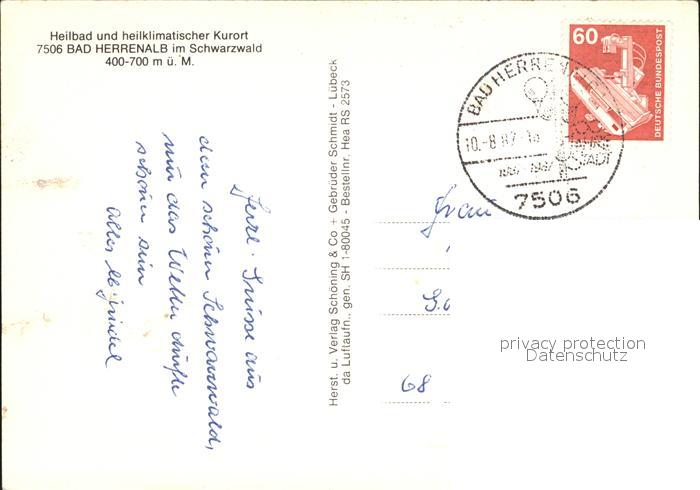 Heilbad und heilklimatischer Kurort
7506 BAD HERRENALB im Schwarzwald
400-700 m ü. M.
Herzl. Grüsse aus
dem schönen Schwarzwald,
nur das Wetter dürfte
schöner sein
Alles
Herst. u. Verlag Schöning & Co + Gebrüder Schmidt - Lübeck
da Luftaufn., gen. SH 1-80045 - Bestellnr. Hea RS 2573
60
DEUTSCHE BUNDESPOST
BAD HERRENALB
10.-8.87-
STADT
1987
7506
Frau
68
privacy protection
Datenschutz